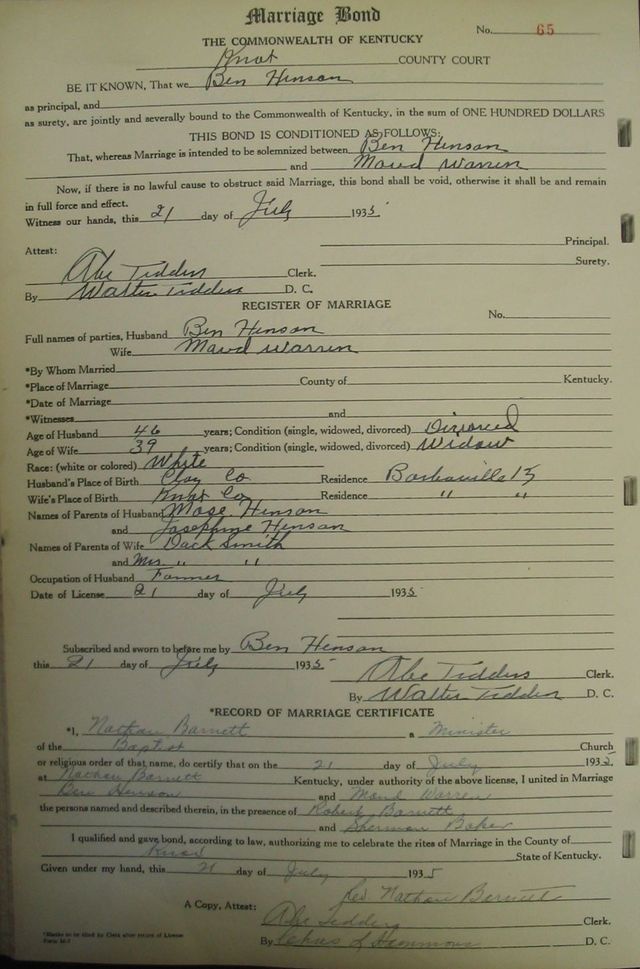 Marriage Bond
No. 65
THE COMMONWEALTH OF KENTUCKY
Knox COUNTY COURT
BE IT KNOWN, That we Ben Henson
as principal, and
as surety, are jointly and severally bound to the Commonwealth of Kentucky, in the sum of ONE HUNDRED DOLLARS
THIS BOND IS CONDITIONED AS FOLLOWS:
That, whereas Marriage is intended to be solemnized between Ben Henson
and Maud Warren
Now, if there is no lawful cause to obstruct said Marriage, this bond shall be void, otherwise it shall be and remain
in full force and effect.
Witness our hands, this 21 day of July 1935
Principal.
Attest:
Surety.
Abe Tedders Clerk.
By Walter Tedders D. C.
REGISTER OF MARRIAGE
No.
Full names of parties, Husband Ben Henson
Wife Maud Warren
*By Whom Married
*Place of Marriage County of Kentucky.
*Date of Marriage
*Witnesses and
Age of Husband 46 years; Condition (single, widowed, divorced) Divorced
Age of Wife 39 years; Condition (single, widowed, divorced) Widow
Race: (white or colored) White
Husband's Place of Birth Clay Co Residence Barbourville
Wife's Place of Birth Knox Co Residence " "
Names of Parents of Husband Mose Henson
and Josephine Henson
Names of Parents of Wife Dack Smith
and Mrs " "
Occupation of Husband Farmer
Date of License 21 day of July 1935
Subscribed and sworn to before me by Ben Henson
this 21 day of July 1935
Abe Tedders Clerk.
By Walter Tedders D. C.
*RECORD OF MARRIAGE CERTIFICATE
*I, Nathan Barnett a Minister
of the Baptist Church
or religious order of that name, do certify that on the 21 day of July 1935
at Nathan Barnett Kentucky, under authority of the above license, I united in Marriage
Ben Henson and Maud Warren
the persons named and described therein, in the presence of Robert Barnett
and Sherman Baker
I qualified and gave bond, according to law, authorizing me to celebrate the rites of Marriage in the County of
Knox State of Kentucky.
Given under my hand, this 21 day of July 1935
Rev Nathan Barnett
A Copy, Attest: Abe Tedders Clerk.
By Hammons D. C.
*Blanks to be filled by Clerk after return of License